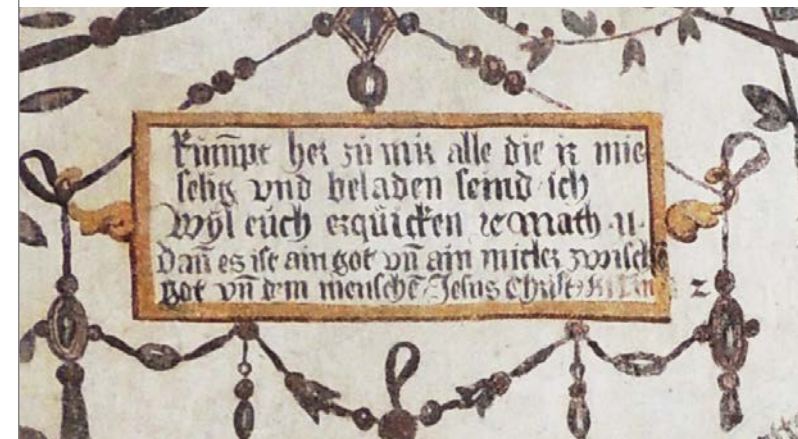 kum̄pt her zů mir alle die ir mie
selig vnd beladen seind / ich
Wyl eůch erquicken ꝛc Math · 11 ·
Dan̄ es ist ain got vn̄ ain mitler zwischē
got vn̄ dem menschē / Jesus Christ 2